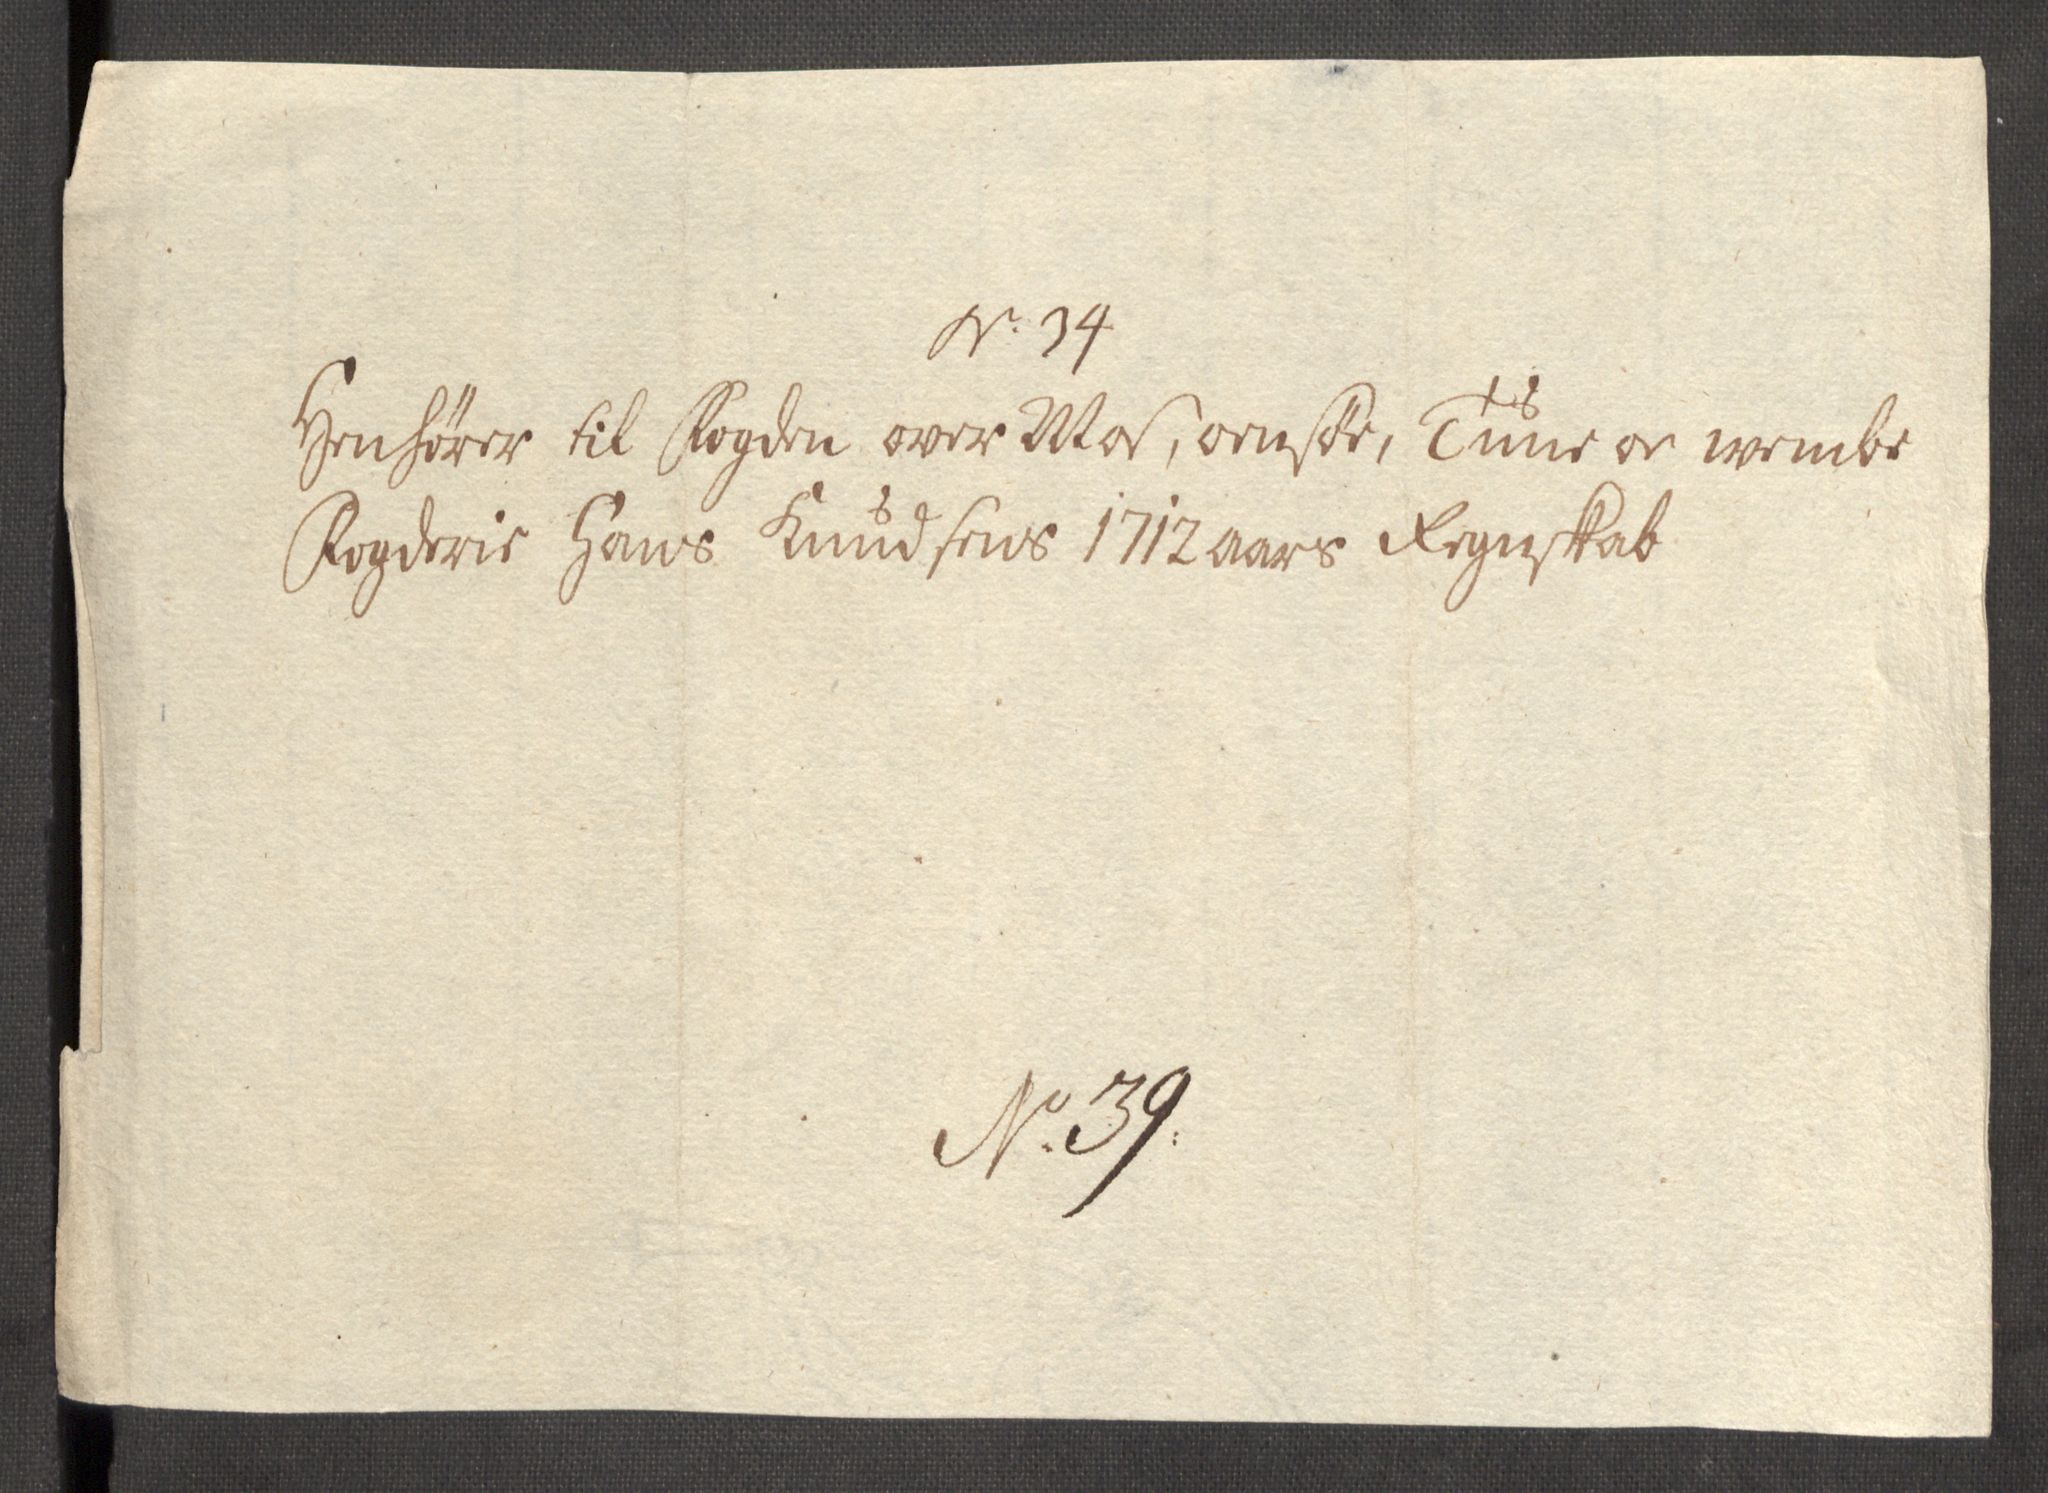 N: 34
Henhører til Fogden over Mos, oensøe, Tune oc wembe
Fogderie Hans Knudsens 1712 aars Regnskab
No. 39: